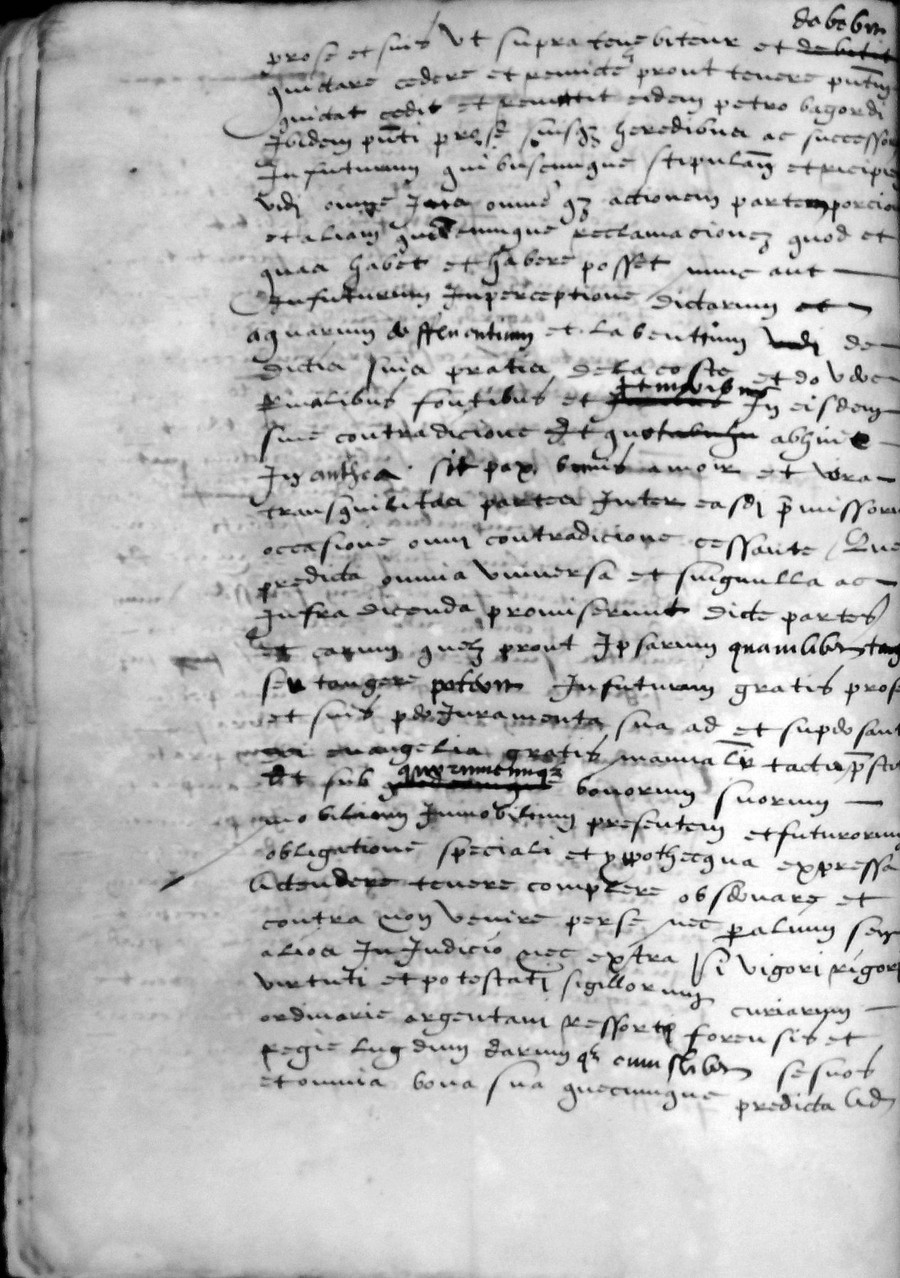 dabebun
pro se et suis Ut supra tenebitur et debitit
quictare cedere et remicte prout tenere
quictat cedit et remittit eidem petro bagordi
Ibidem pnti pro se suisqz heredibus ac success
In futurum quibuscunque stipulan et recipien
omne Jus omne qz actionem partem porcio
et aliam quamcunque reclamacionez quod et
quas habet et habere posset nunc aut
Infuturum Inperceptione dictarum et
aquarum deffluentium et labentium de
dictis suis pratis de la coste et do
pluvialibus fontibus et In eisdem
sine contradicione Et abhinc
In anthea sit pax bonus amor et vera
transquilitas partes Inter easd pmissoru
occasione omni contradicione cessante Que
predicta omnia Universa et singulla ac
Infra dicenda promiserunt dicte partes
et earum quelz prout Ipsarum quamlibet tang
seu tangere poterun Infuturum gratis pro se
et suis Juramenta sua ad et sup do sant
evangelia gratis manualr tactis psti
Et sub quorumcunqz bonorum suorum
mobilium Inmobilium presentem et futurorum
obligatione speciali et ypothecqua expressa
Actendere tenere complere observare et
contra non venire per se nec palium seu
alios In Judicio nec extra Si vigori rigor
virtuti et potestati sigillorum curiarum
ordinarie argentam ressorti forensis et
Regie lugdum darum qz cuiuslibet se suos
et omnia bona sua quecunque predicta